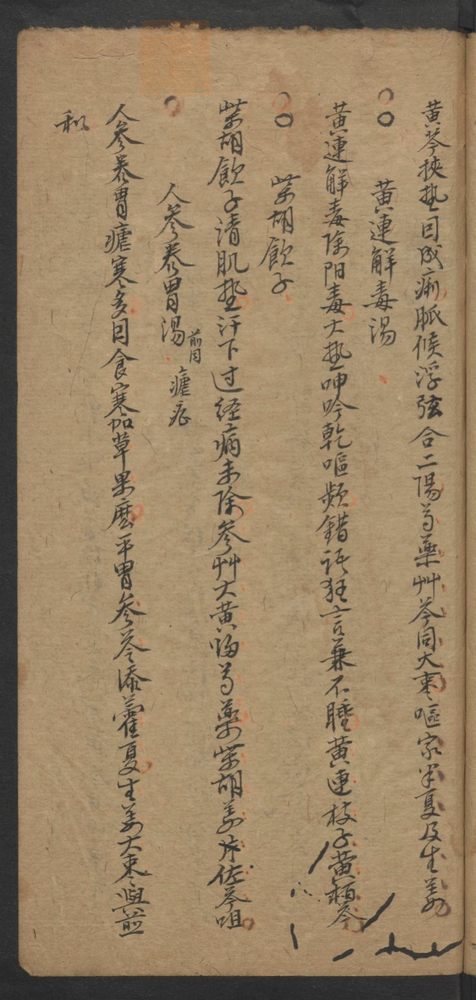 黄芩挾热因成痢脈候浮弦合二陽芍藥艸芩同大枣嘔家半夏及生姜
黄連解毒湯
黄連解毒除阳毒大热呻吟乾嘔频錯語狂言兼不睡黄連枝子黄栢芩
柴胡飲子
柴胡飲子清肌热汗下过经病未除参艸大黄归芍藥柴胡姜片佐芩咀
人参养胃湯 前同 瘧疟
人参养胃瘧寒多因食寒加草果麽平胃参苓添藿夏生姜大枣與煎
和